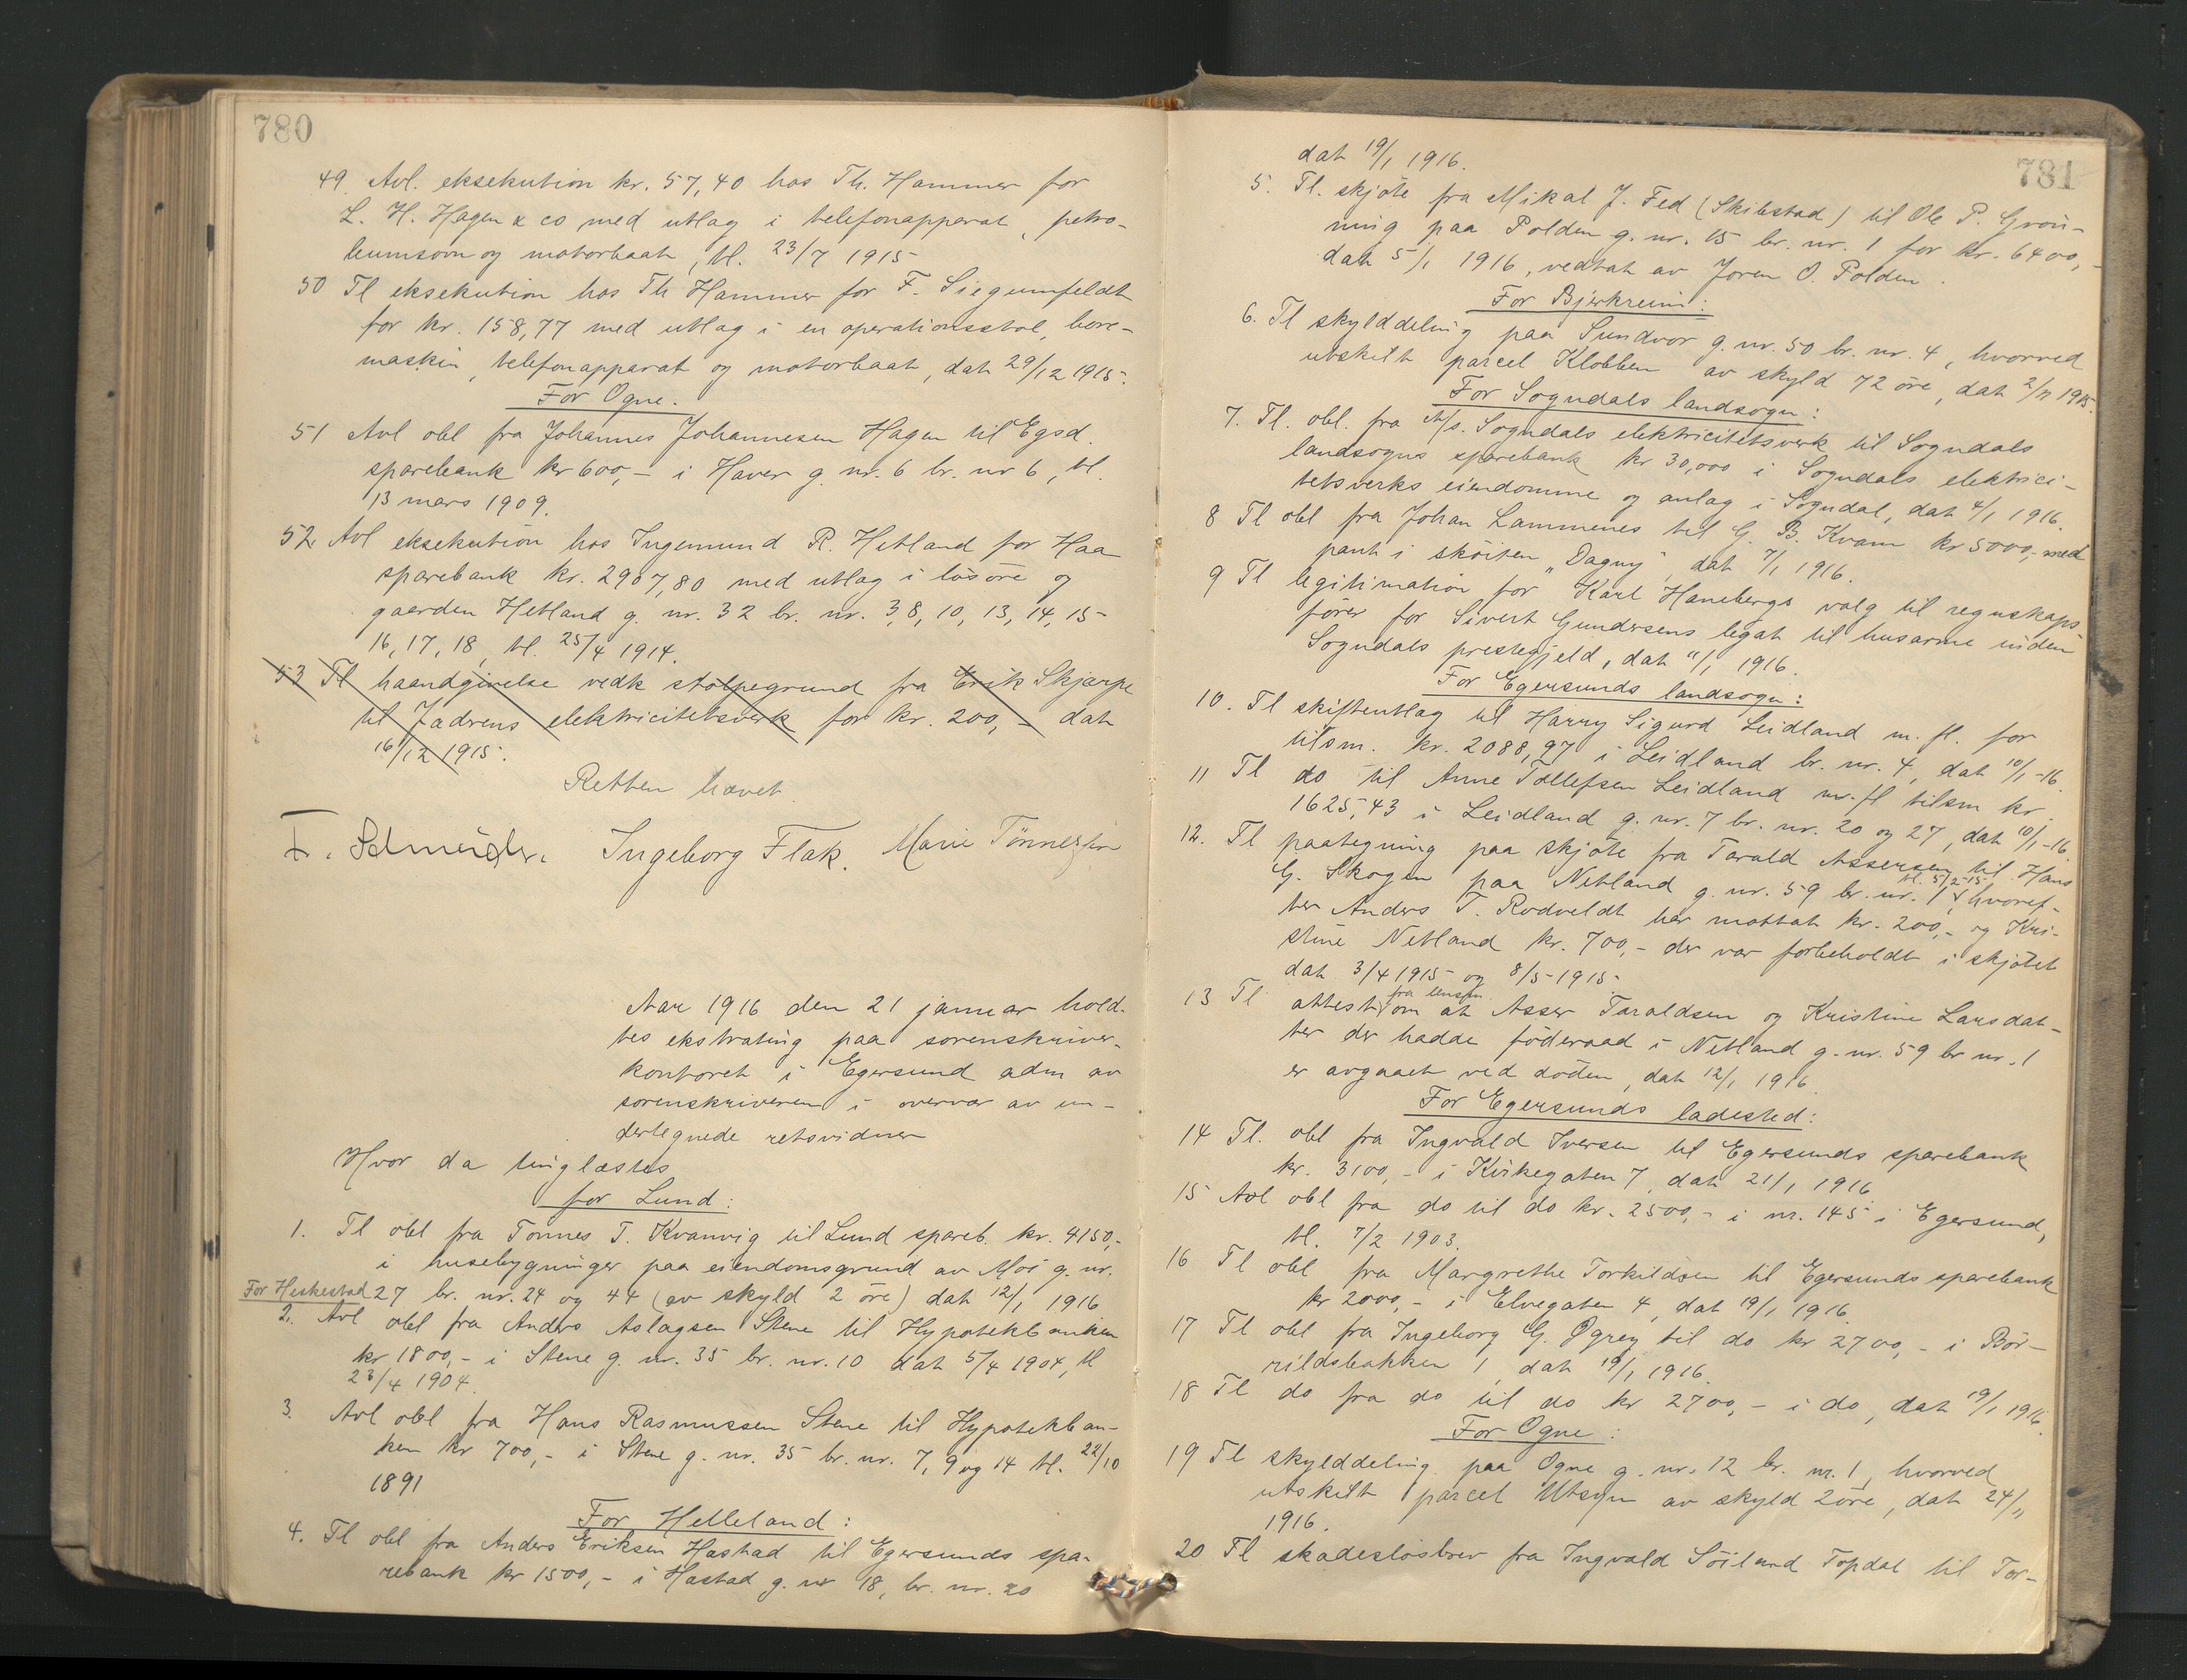 780
49. Avl. eksekution kr. 57,40 hos Th. Hammer for
L. H. Hagen & co med utlag i telefonapparat, petro-
leumsovn og motorbaat, tl. 23/7 1915
50 Tl eksekution hos Th Hammer for F. Siegumfeldt
for kr. 158,77 med utlag i en operationsstol, bore-
maskin, telefonapparat og motorbaat, dat 29/12 1915.
For Ogne.
51 Avl obl fra Johannes Johannesen Hagen til Egsd.
sparebank kr 600,- i Haver g. nr. 6 br. nr 6, tl.
13 mars 1909.
52. Avl eksekution hos Ingemund R. Hetland for Haa
sparebank kr. 2907,80 med utlag i løsøre og
gaarden Hetland g. nr. 32 br. nr. 3, 8, 10, 13, 14, 15
16, 17, 18, tl. 25/4 1914.
53 Tl haandgivelse vedk stolpegrund fra Erik Skjærpe
til Jædrens elektricitetsverk for kr. 200,- dat
16/12 1915.
Retten hævet
F. Schneider. Ingeborg Flak. Marie Tønnessen
Aar 1916 den 21 januar hold-
tes ekstrating paa sorenskriver-
kontoret i Egersund adm av
sorenskriveren i overvær av un-
dertegnede retsvidner
Hvor da tinglæstes
for Lund:
1. Tl obl fra Tønnes T. Kvanvig til Lund spareb. kr. 4150,-
i husebygninger paa eiendomsgrund av Moi g. nr.
27 br. nr. 24 og 44 (av skyld 2 øre) dat 12/1 1916
For Heskestad
2. Avl obl fra Anders Aslagsen Stene til Hypotekbanken
kr 1800,- i Stene g. nr. 35 br. nr. 10 dat 5/4 1904, tl
23/4 1904.
3. Avl obl fra Hans Rasmussen Stene til Hypotekban-
ken kr 700,- i Stene g. nr. 35 br. nr. 7, 9 og 14 tl. 22/10
1891
For Helleland:
4. Tl obl fra Anders Eriksen Håstad til Egersunds spa-
rebank kr 1500,- i Håstad g. nr 18, br. nr. 20
781
dat 19/1 1916.
5. Tl. skjøte fra Mikal J. Fed (Skibstad) til Ole P. Grøn-
ning paa Polden g. nr. 15 br. nr. 1 for kr. 6400,-
dat 5/1 1916, vedtat av Joren O. Polden.
For Bjerkreim:
6. Tl skylddeling paa Sundvor g. nr. 50 br. nr. 4, hvorved
utskilt parcel Klobben av skyld 72 øre, dat 2/11 1915.
For Sogndals landsogn:
7. Tl. obl. fra A/s. Sogndals elektricitetsverk til Sogndals
landsogns sparebank kr 30,000 i Sogndals elektrici-
tetsverks eiendomme og anlag i Sogndal, dat 4/1 1916.
8 Tl obl fra Johan Lammenes til G. B. Kvam kr 5000,- med
pant i skøiten „Dagny", dat 7/1 1916.
9 Tl legitimation for Karl Hanebergs valg til regnskaps
fører for Sivert Gundersens legat til husarme inden
Sogndals prestegjeld, dat 11/1 1916.
For Egersunds landsogn:
10. Tl skifteutlag til Harry Sigurd Leidland m. fl. for
tilsm. kr. 2088,97 i Leidland br. nr. 4, dat 10/1-16.
11 Tl do til Anne Tollefsen Leidland m. fl tilsm kr.
1625,43 i Leidland g. nr. 7 br. nr. 20 og 27, dat 10/1-16.
12. Tl paategning paa skjøte fra Tarald Assersen til Hans
G. Skogen paa Netland g. nr. 59 br. nr. 1, tl. 5/2-15 hvoref-
ter Anders T. Rodveldt har mottat kr. 200,- og Kri-
stine Netland kr. 700,- der var forbeholdt i skjøtet
dat 3/4 1915 og 8/5 1915.
13 Tl attest fra lensm. om at Asser Taraldsen og Kristine Larsdat-
ter der hadde føderaad i Netland g. nr. 59 br nr. 1
er avgaaet ved døden, dat 12/1 1916
For Egersunds ladested:
14 Tl. obl fra Ingvald Iversen til Egersunds sparebank
kr. 3100,- i Kirkegaten 7, dat 21/1 1916
15 Avl obl fra do til do kr. 2500,- i nr. 145 i Egersund,
tl. 7/2 1903.
16 Tl obl fra Margrethe Torkildsen til Egersunds sparebank
kr 2000,- i Elvegaten 4, dat 19/1 1916.
17 Tl obl fra Ingeborg G. Øgrey til do kr 2700,- i Bør-
rildsbakken 1, dat 19/1 1916.
18 Tl do fra do til do kr 2700,- i do, dat 19/1 1916.
For Ogne:
19 Tl skylddeling paa Ogne g. nr. 12 br. nr. 1, hvorved
utskilt parcel Utsyn av skyld 2øre, dat 24/11
1916.
20 Tl skadesløsbrev fra Ingvald Söiland Topdal til Tor-